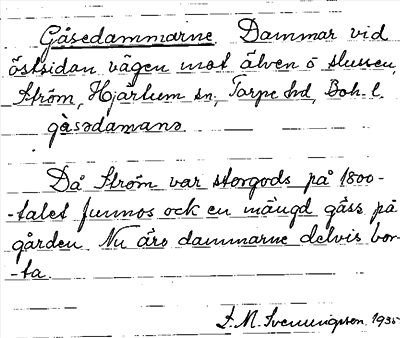 Gåsedammarne. Dammar vid
östsidan vägen mot älven ö slussen,
Ström, Hjärtum sn, Torpe hd, Boh. l.
gåsədamanə
Då Ström var storgods på 1800-
-talet funnos ock en mängd gäss på
gården. Nu äro dammarne delvis bor-
-ta.
F. M. Svenungsson. 1935